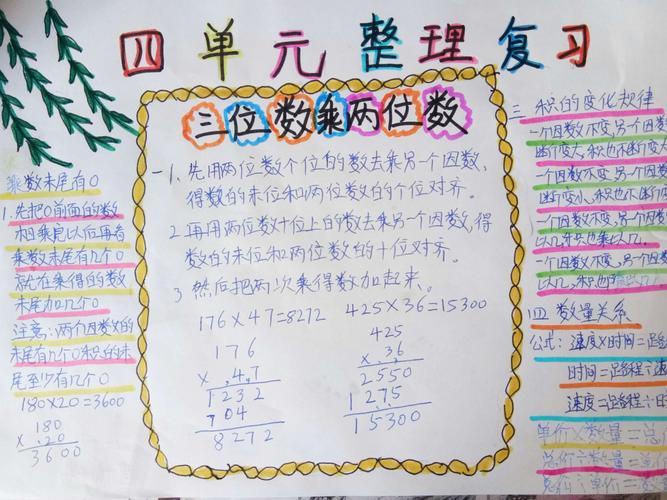 四单元整理复习
三位数乘两位数
一1、先用两位数个位上的数去乘另一个因数,
得数的末位和两位数的个位对齐。
2、再用两位数十位上的数去乘另一个因数,得
数的末位和两位数的十位对齐。
3 然后把两次乘得数加起来。
176×47=8272
176
×47
1232
704
8272
425×36=15300
425
×36
2550
1275
15300
乘数末尾有0
1.先把0前面的数
相乘完以后再看
乘数末尾有几个0
就在乘得的数
末尾加几个0
注意:两个因数的
末尾有几个0积的末
尾至少有几个0
180×20=3600
180
×20
3600
三 积的变化规律
一个因数不变,另一个因数
断变大,积也不断变大
一个因数不变,另一个因数
断变小,积也不断
一个因数不变,另一个因
以几,积也乘以几。
一个因数不变,另一个因
以几,积也
四 数量关系
公式:速度×时间=路
时间=路程÷速
速度=路程÷时
单价×数量=总
总价÷数量=
总价÷单价=